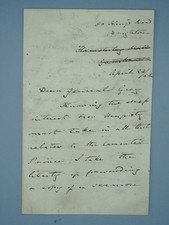 Kings Road
Brighton
April 24
Dear General Grey
Knowing the deep
interest her Majesty
must take in all that
relates to the lamented
Prince I take the
liberty of forwarding
a copy of a sermon